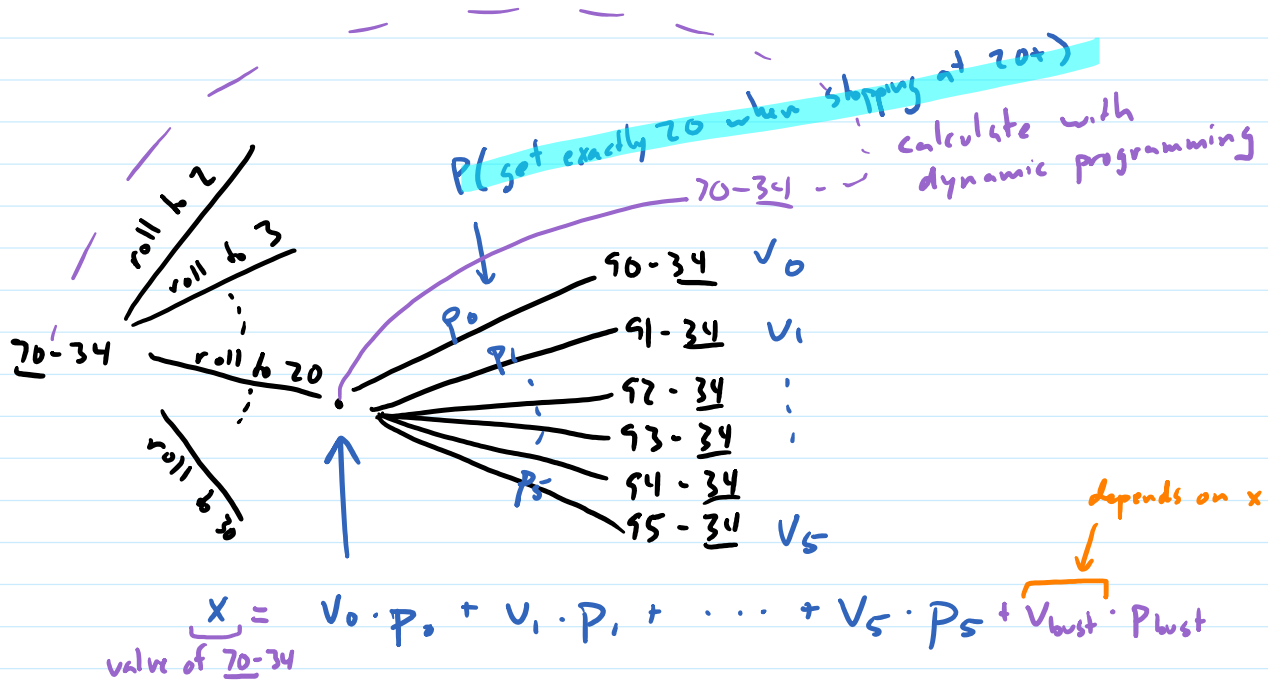 P(get exactly 20 when stopping at 20+)
calculate with
dynamic programming
70-34
roll to 2
roll to 3
70-34
roll to 20
roll to 30
p0
p1
p5
90-34 V0
91-34 V1
92-34
93-34
94-34
95-34 V5
depends on x
x = V0 · P0 + V1 · P1 + · · · · + V5 · P5 + Vbust · Pbust
value of 70-34